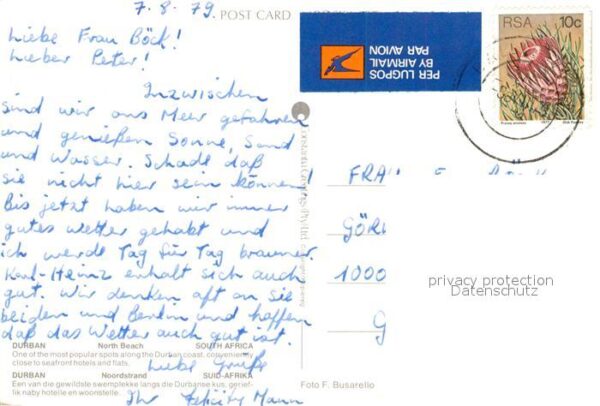 7.8.79.
POST CARD
Liebe Frau Böck!
Lieber Peter!
Inzwischen
sind wir ans Meer gefahren
und genießen Sonne, Sand
und Wasser. Schade daß
sie nicht hier sein können!
Bis jetzt haben wir immer
gutes Wetter gehabt und
ich werde Tag für Tag brauner.
Karl-Heinz erhält sich auch
gut. Wir denken oft an sie
beiden und Berlin und hoffen
daß das Wetter auch gut ist.
Liebe Grüße
Ihr Felicity Mann
DURBAN North Beach SOUTH AFRICA
One of the most popular spots along the Durban coast, conveniently
close to seafront hotels and flats.
DURBAN Noordstrand SUID-AFRIKA
Een van die gewildste swemplekke langs die Durbanse kus, gerief-
lik naby hotelle en woonstelle.
Foto F. Busarello
PER LUGPOS
BY AIRMAIL
PAR AVION
RSA 10c
FRAU
GÖRL
1000
G
privacy protection
Datenschutz